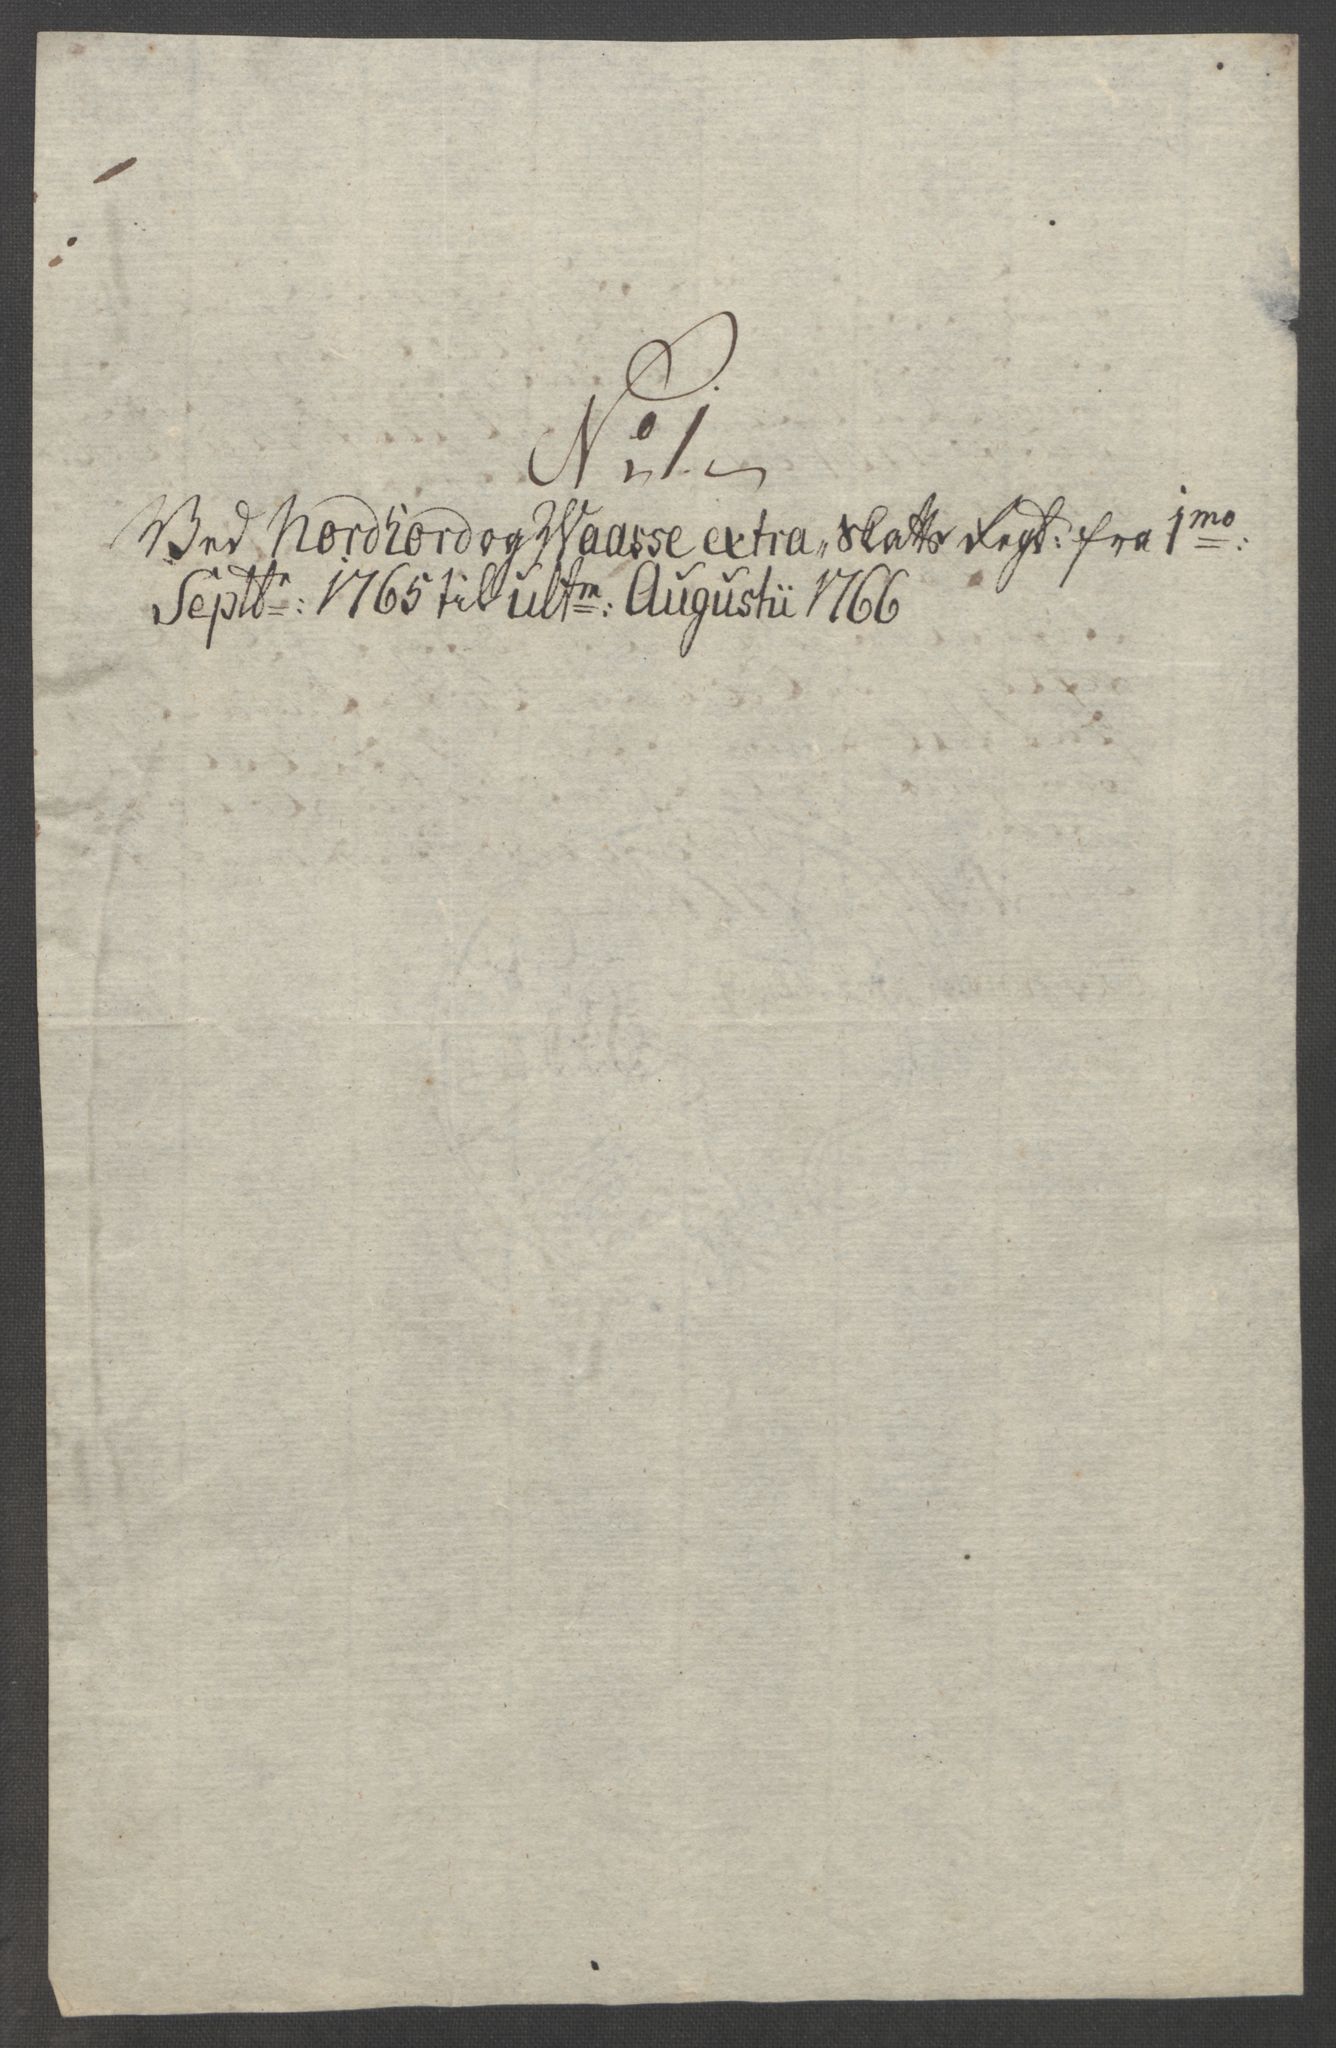 No 1
Ved Nordhord og Waasse extra, Skatts Regt: fra 1mo:
Septbr: 1765 til ultm: Augustii 1766